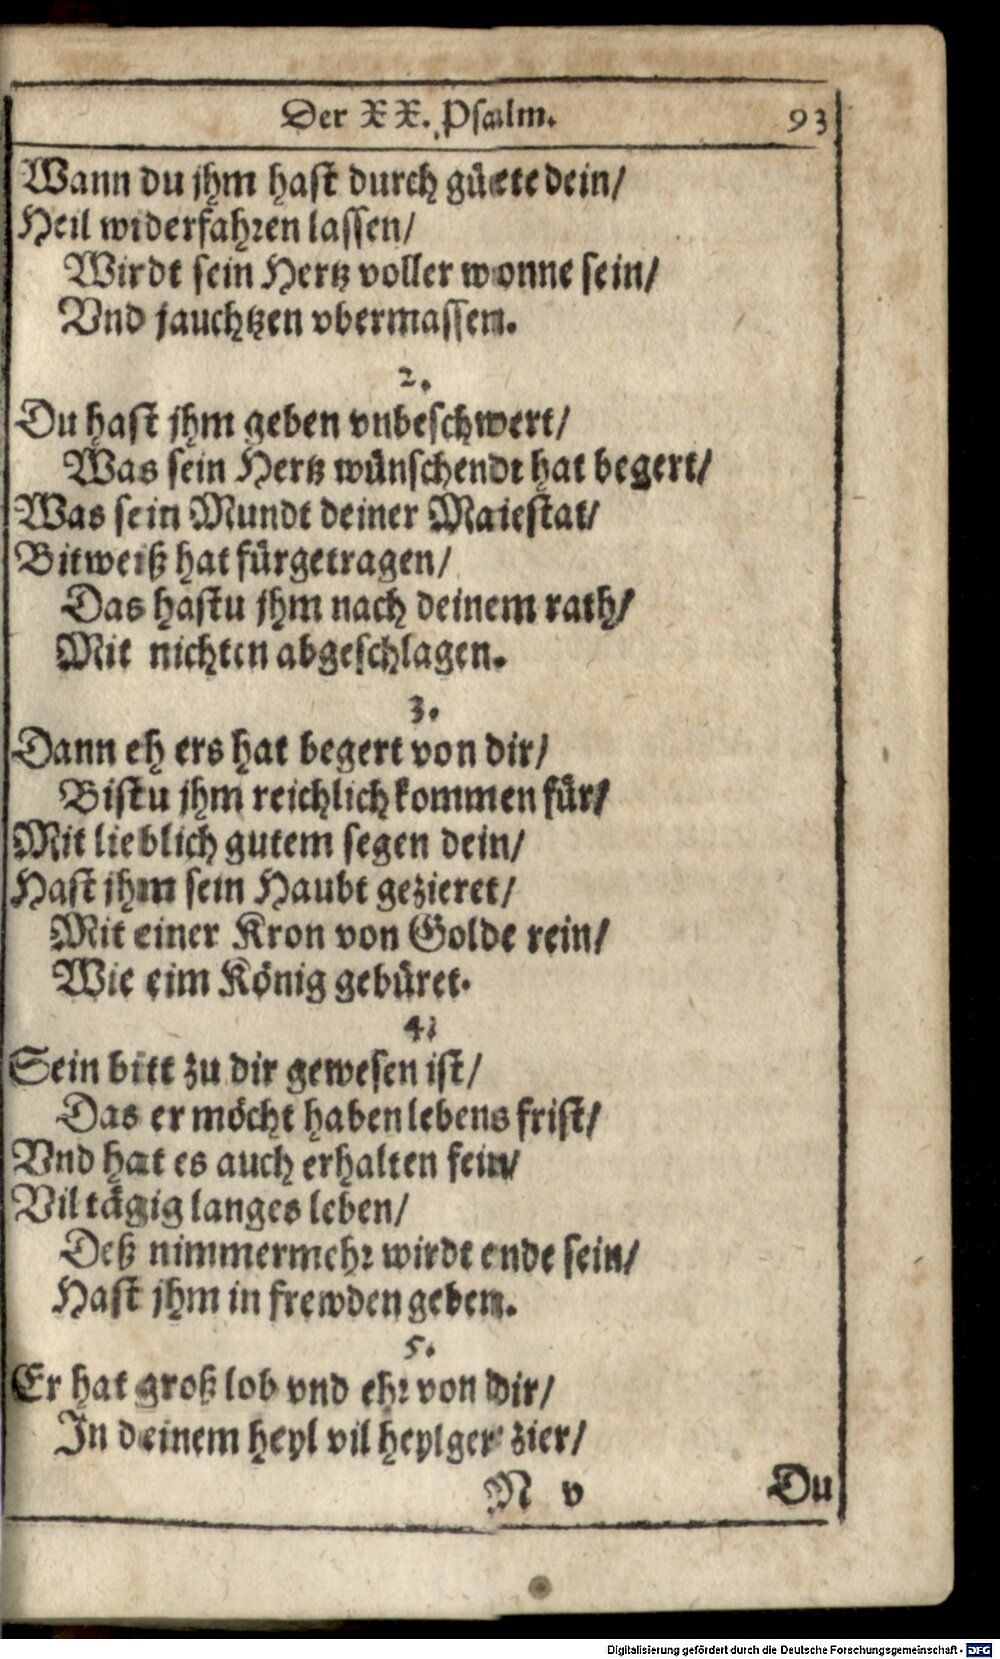 Der XX. Psalm. 93
Wann du jhm hast durch güete dein/
Heil widerfahren lassen/
Wirdt sein Hertz voller wonne sein/
Vnd jauchtzen vbermassen.
2.
Du hast jhm geben vnbeschwert/
Was sein Hertz wünschendt hat begert/
Was sein Mundt deiner Maiestat/
Bitweiß hat fürgetragen/
Das hastu jhm nach deinem rath/
Mit nichten abgeschlagen.
3.
Dann eh ers hat begert von dir/
Bistu jhm reichlich kommen für/
Mit lieblich gutem segen dein/
Hast jhm sein Haubt gezieret/
Mit einer Kron von Golde rein/
Wie eim König gebüret.
4.
Sein bitt zu dir gewesen ist/
Das er möcht haben lebens frist/
Vnd hat es auch erhalten fein/
Vil tägig langes leben/
Deß nimmermehr wirdt ende sein/
Hast jhm in frewden geben.
5.
Er hat groß lob vnd ehr von dir/
In deinem heyl vil heylger zier/
N v Du
Digitalisierung gefördert durch die Deutsche Forschungsgemeinschaft - DFG